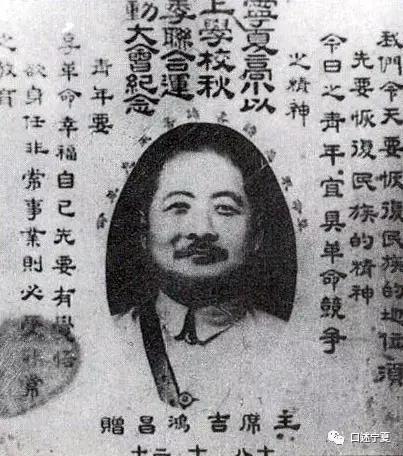 我們今天要恢復民族的地位須
先要恢復民族的精神
今日之青年宜具革命競爭
之精神
寧夏高小以
上學校秋
季聯合運
動大會紀念
青年要
享革命幸福自己先要有覺悟
欲身任非常事業則必受非常
之教育
主席吉鴻昌贈
口述宁夏